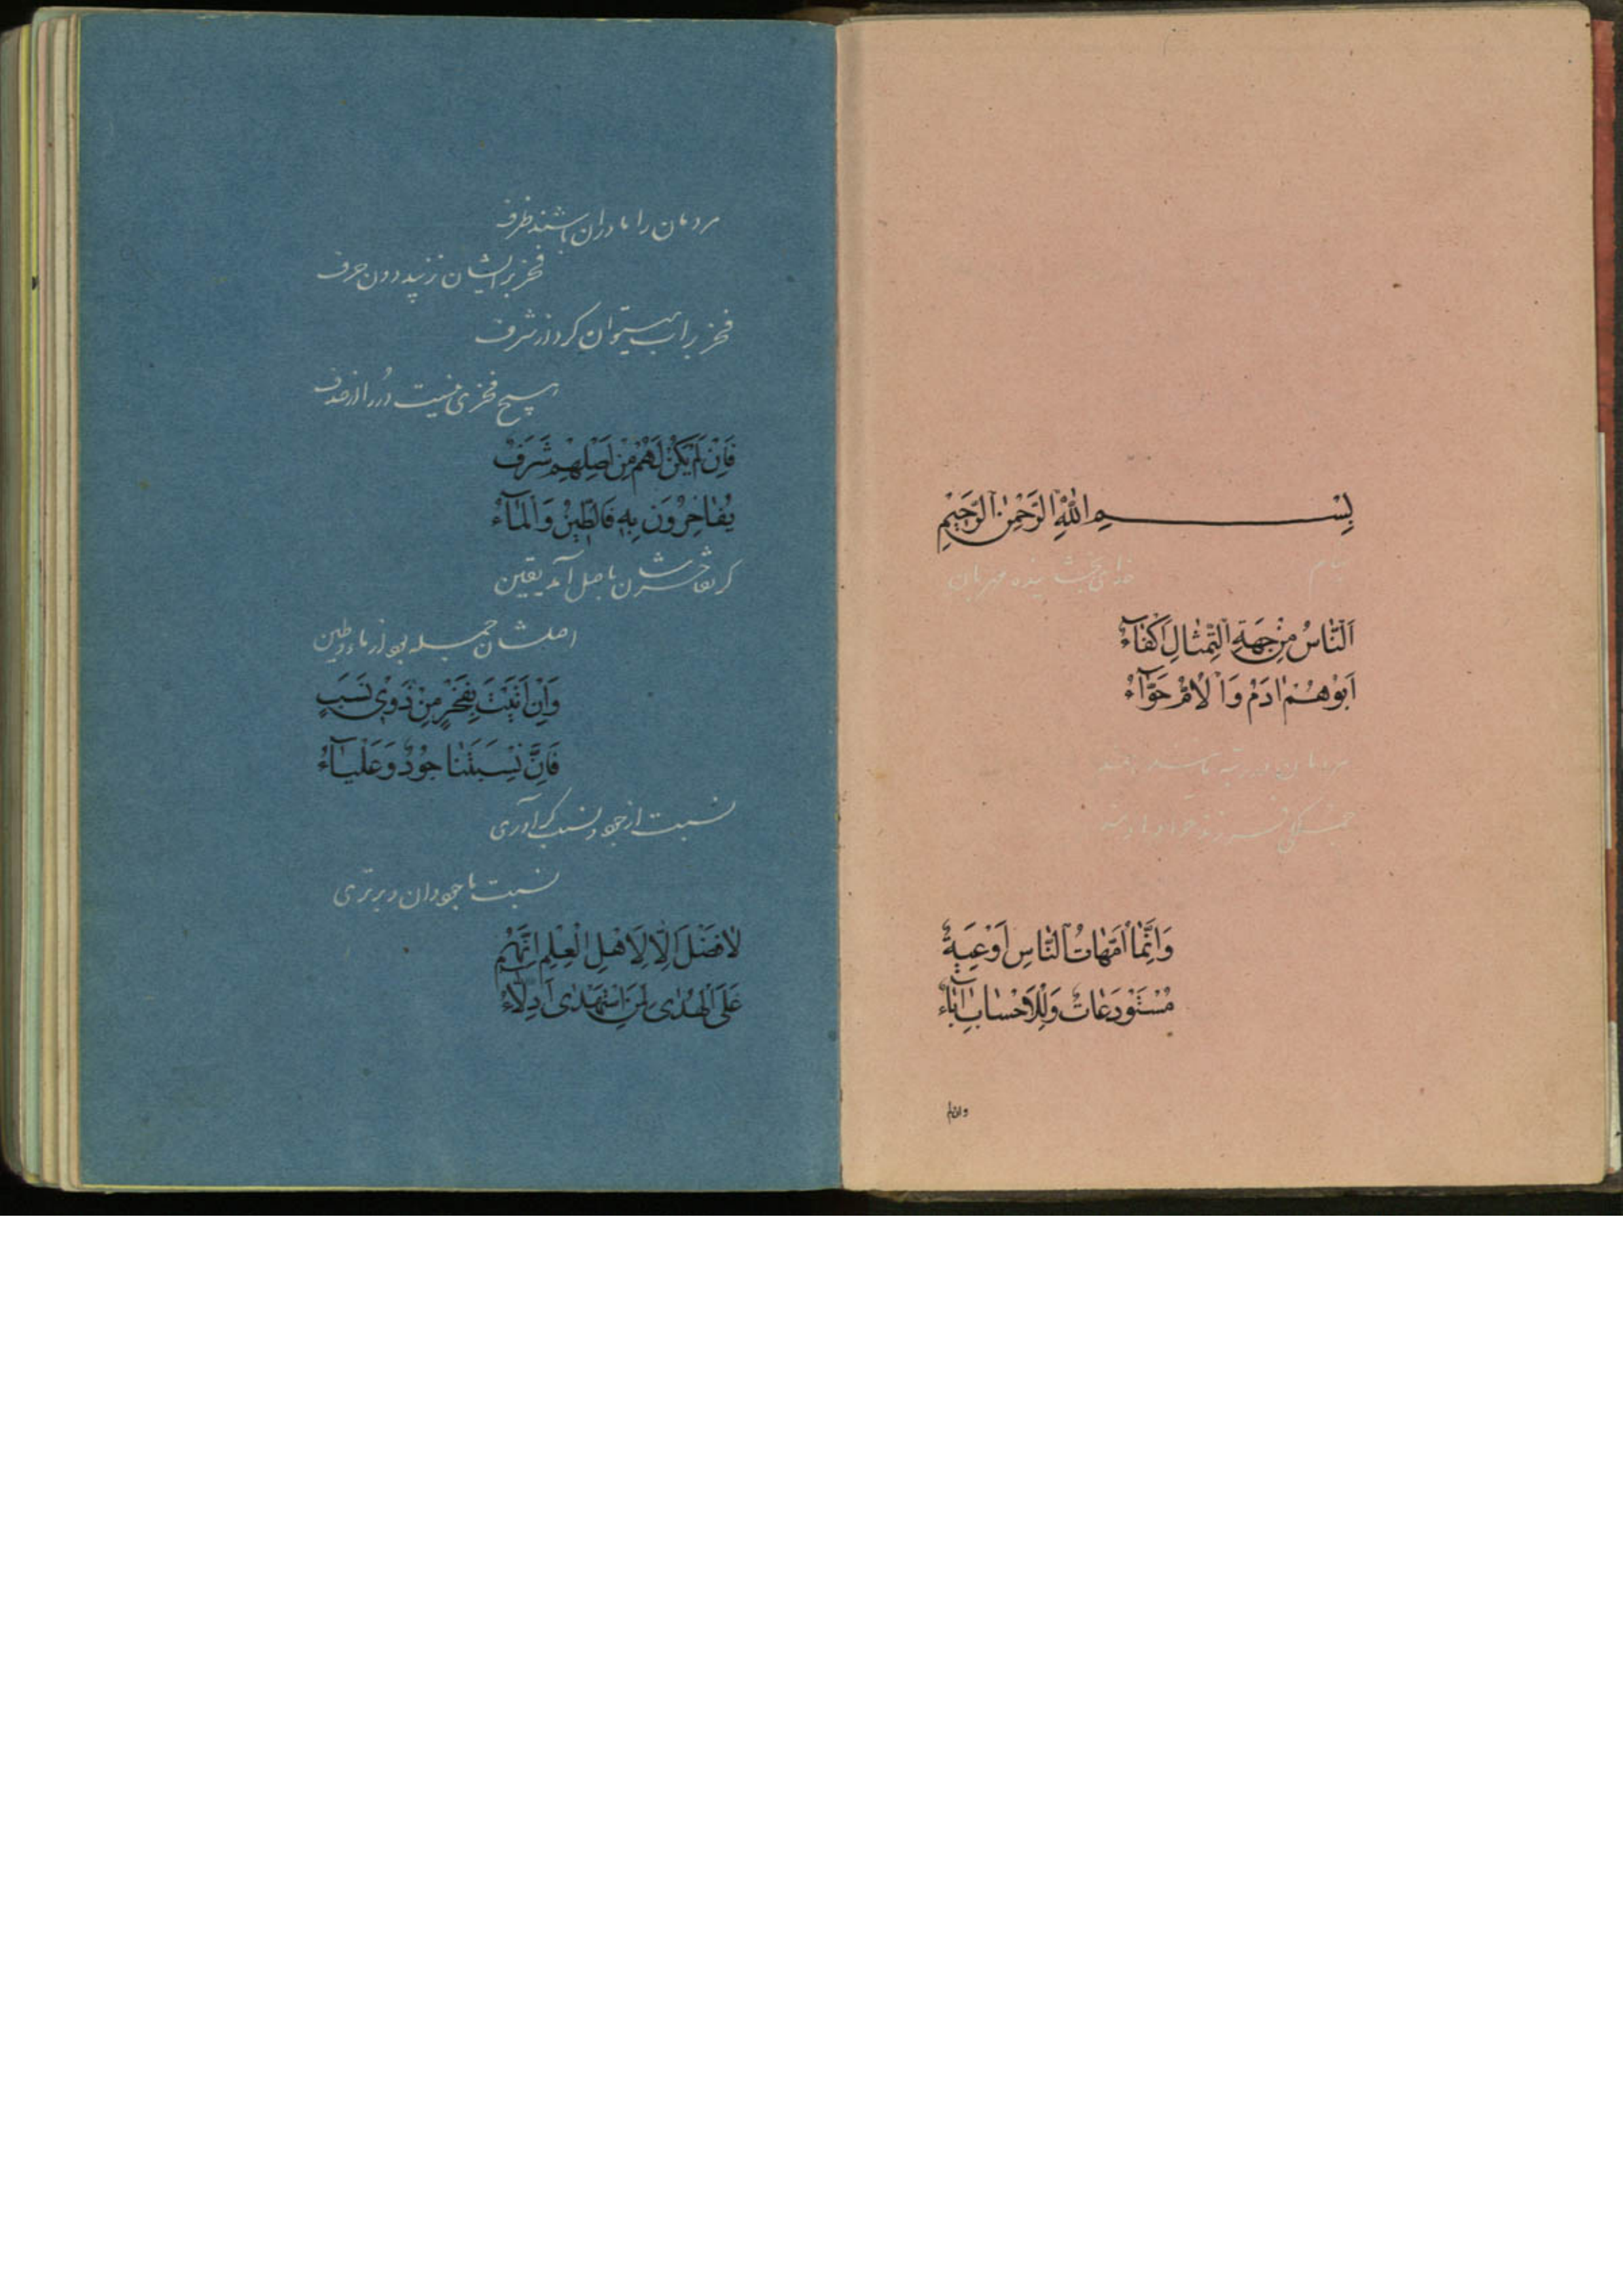 بِسْمِ اللّٰهِ الرَّحْمٰنِ الرَّحِيْمِ
بنام خدای بخشاینده مهربان
اَلنَّاسُ مِنْ جِهَةِ التِّمْثَالِ اَكْفَاءٌ
اَبُوْهُمُ اٰدَمُ وَالْاُمُّ حَوَّاءُ
مردمان در رتبه
فرزند حوا و
وَاِنَّمَا اُمَّهَاتُ النَّاسِ اَوْعِيَةٌ
مُسْتَوْدَعَاتٌ وَلِلْاَحْسَابِ اٰبَاءُ
وانما
مردمان را مادران باشند ظرف
فخر بر ایشان نزیبد دون حرف
فخر بر اب میتوان کرد از شرف
هیچ فخری نیست دُر را از صدف
فَاِنْ لَمْ يَكُنْ لَهُمْ مِنْ اَصْلِهِمْ شَرَفٌ
يُفَاخِرُوْنَ بِهٖ فَالطِّيْنُ وَالْمَاءُ
کر تفاخرشان باصل آمد یقین
اصلشان جمله بود از ماء و طین
وَاِنْ اَتَيْتَ بِفَخْرٍ مِنْ ذَوِيْ نَسَبٍ
فَاِنَّ نِسْبَتَنَا جُوْدٌ وَعَلْيَاءُ
نسبت از جود و نسب کر آوری
نسبت ما جود دان و برتری
لَا فَضْلَ اِلَّا لِاَهْلِ الْعِلْمِ اِنَّهُمْ
عَلَى الْهُدٰى لِمَنِ اسْتَهْدٰى اَدِلَّاءُ